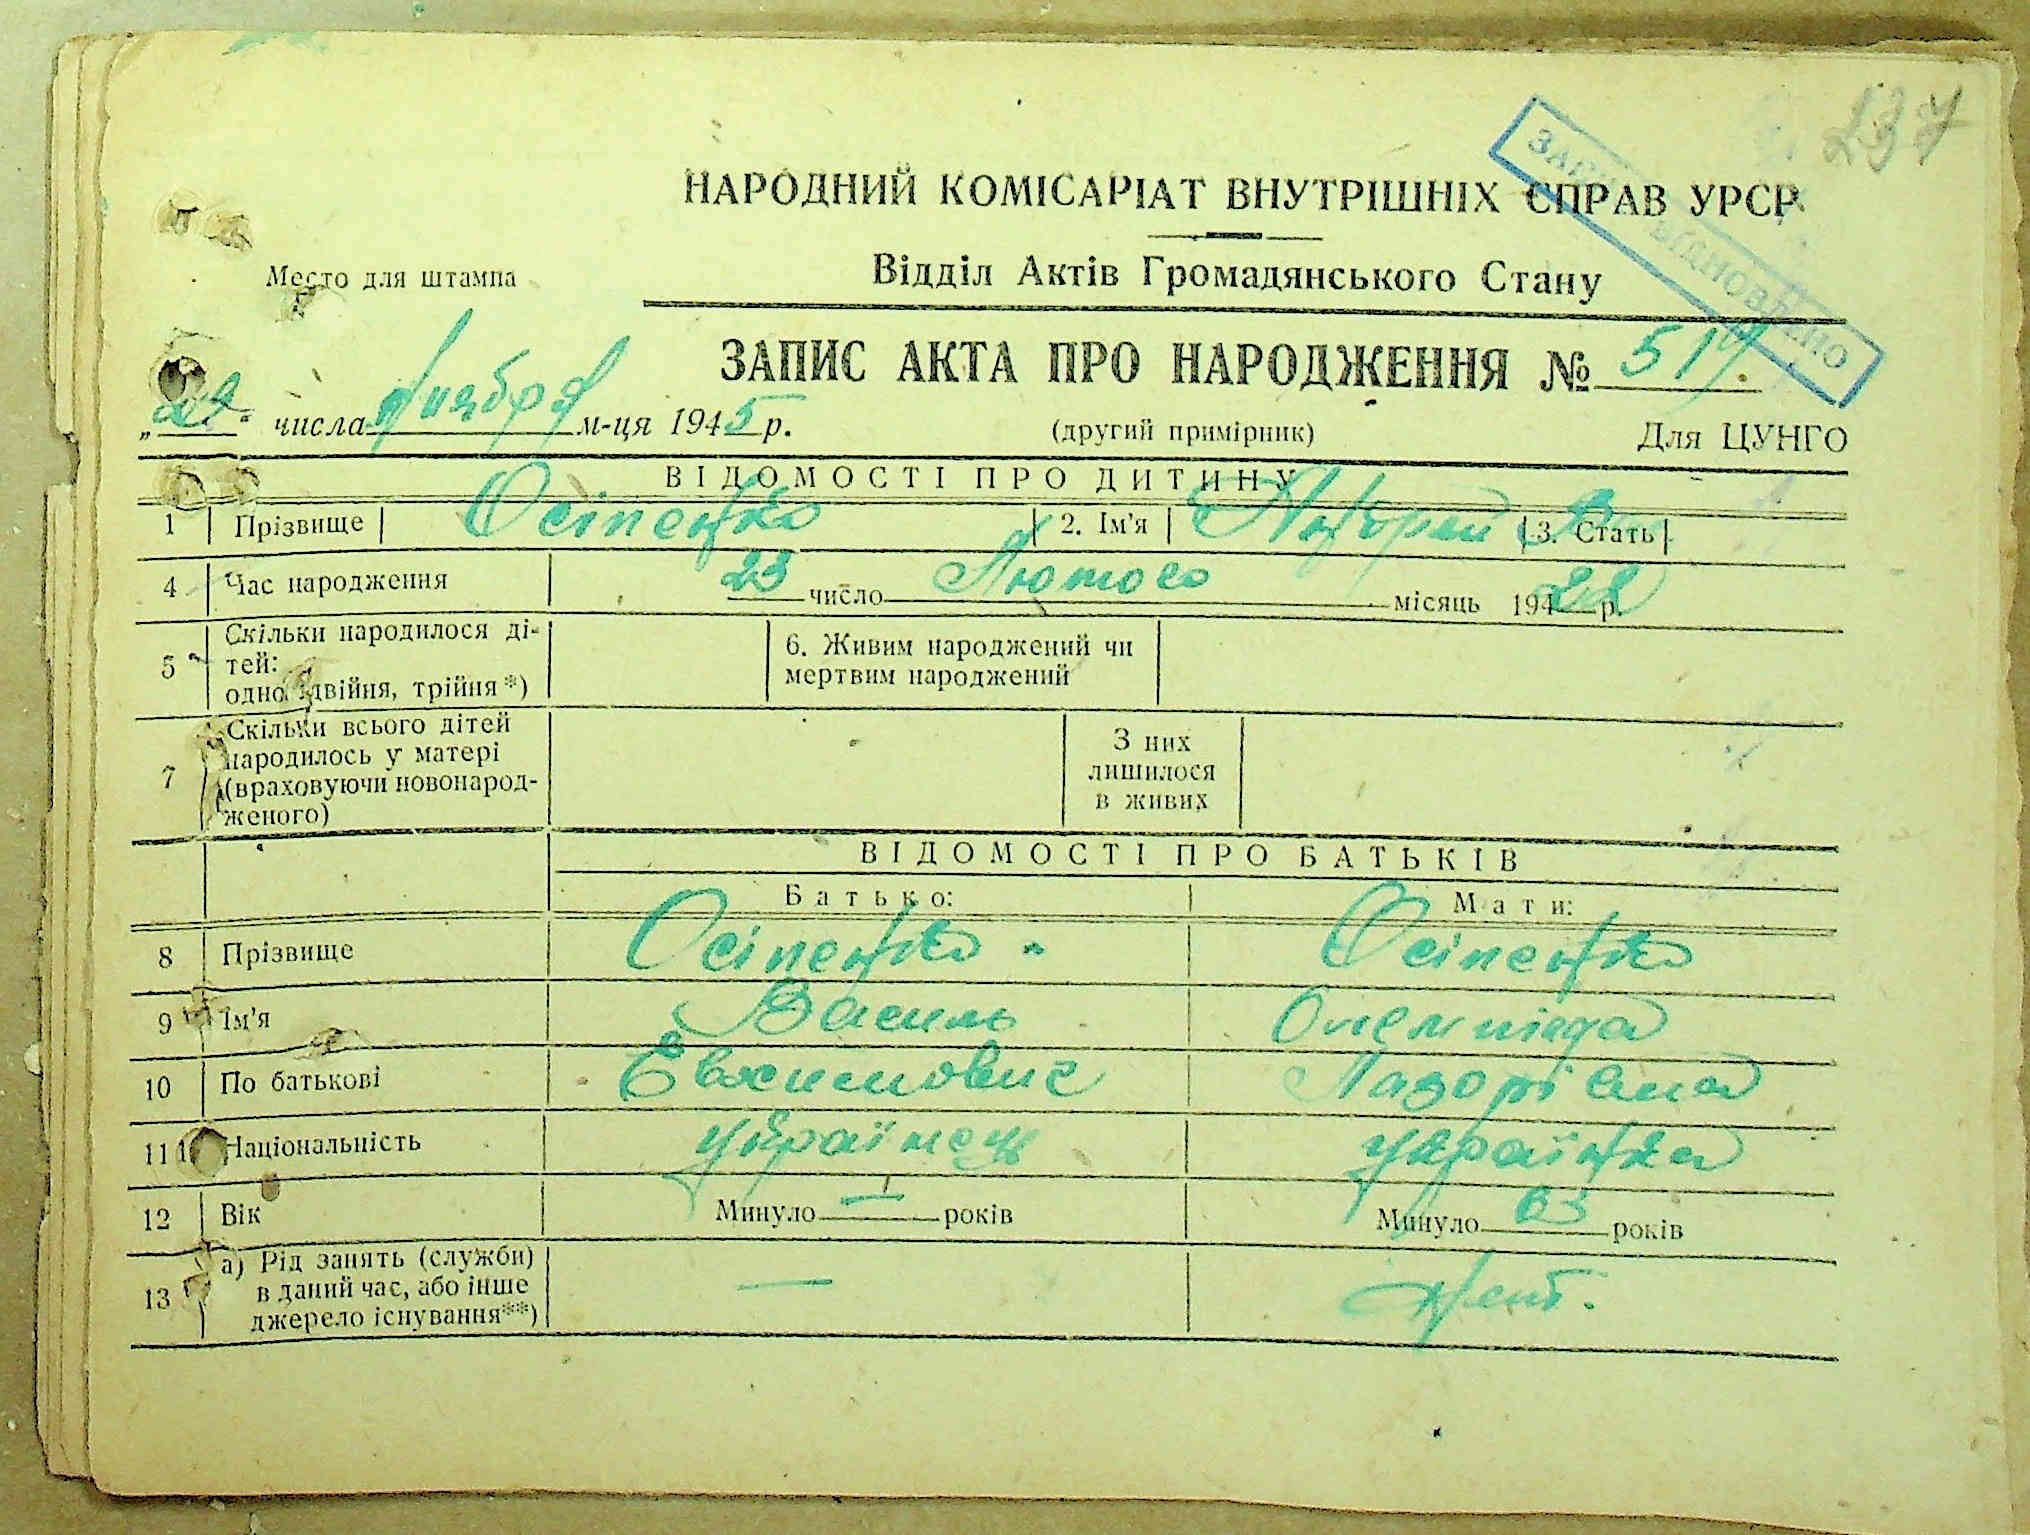 237
ЗАПИС ВІДНОВЛЕНО
НАРОДНИЙ КОМІСАРІАТ ВНУТРІШНІХ СПРАВ УРСР
Место для штампа
Відділ Актів Громадянського Стану
ЗАПИС АКТА ПРО НАРОДЖЕННЯ №
„ “ числа ноября м-ця 1945 р.
(другий примірник)
Для ЦУНГО
ВІДОМОСТІ ПРО ДИТИНУ
1 Прізвище Осіпенко 2. Ім'я Андрей 3. Стать
4 Час народження 23 число Лютого місяць 194 22 р.
5 Скільки народилося ді-
тей:
одно, двійня, трійня*)
6. Живим народжений чи
мертвим народжений
7 Скільки всього дітей
народилось у матері
(враховуючи новонарод-
женого)
З них
лишилося
в живих
ВІДОМОСТІ ПРО БАТЬКІВ
Батько: Мати:
8 Прізвище Осіпенко Осіпенко
9 Ім'я Василь
10 По батькові Лазорівна
11 Національність українець українка
12 Вік Минуло — років Минуло 63 років
13 а) Рід занять (служби)
в даний час, або інше
джерело існування**)
—